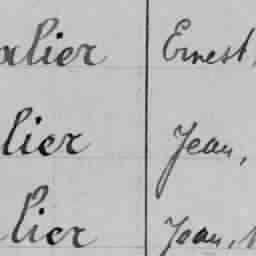 alier Ernest,
lier Jean,
lier Jean,